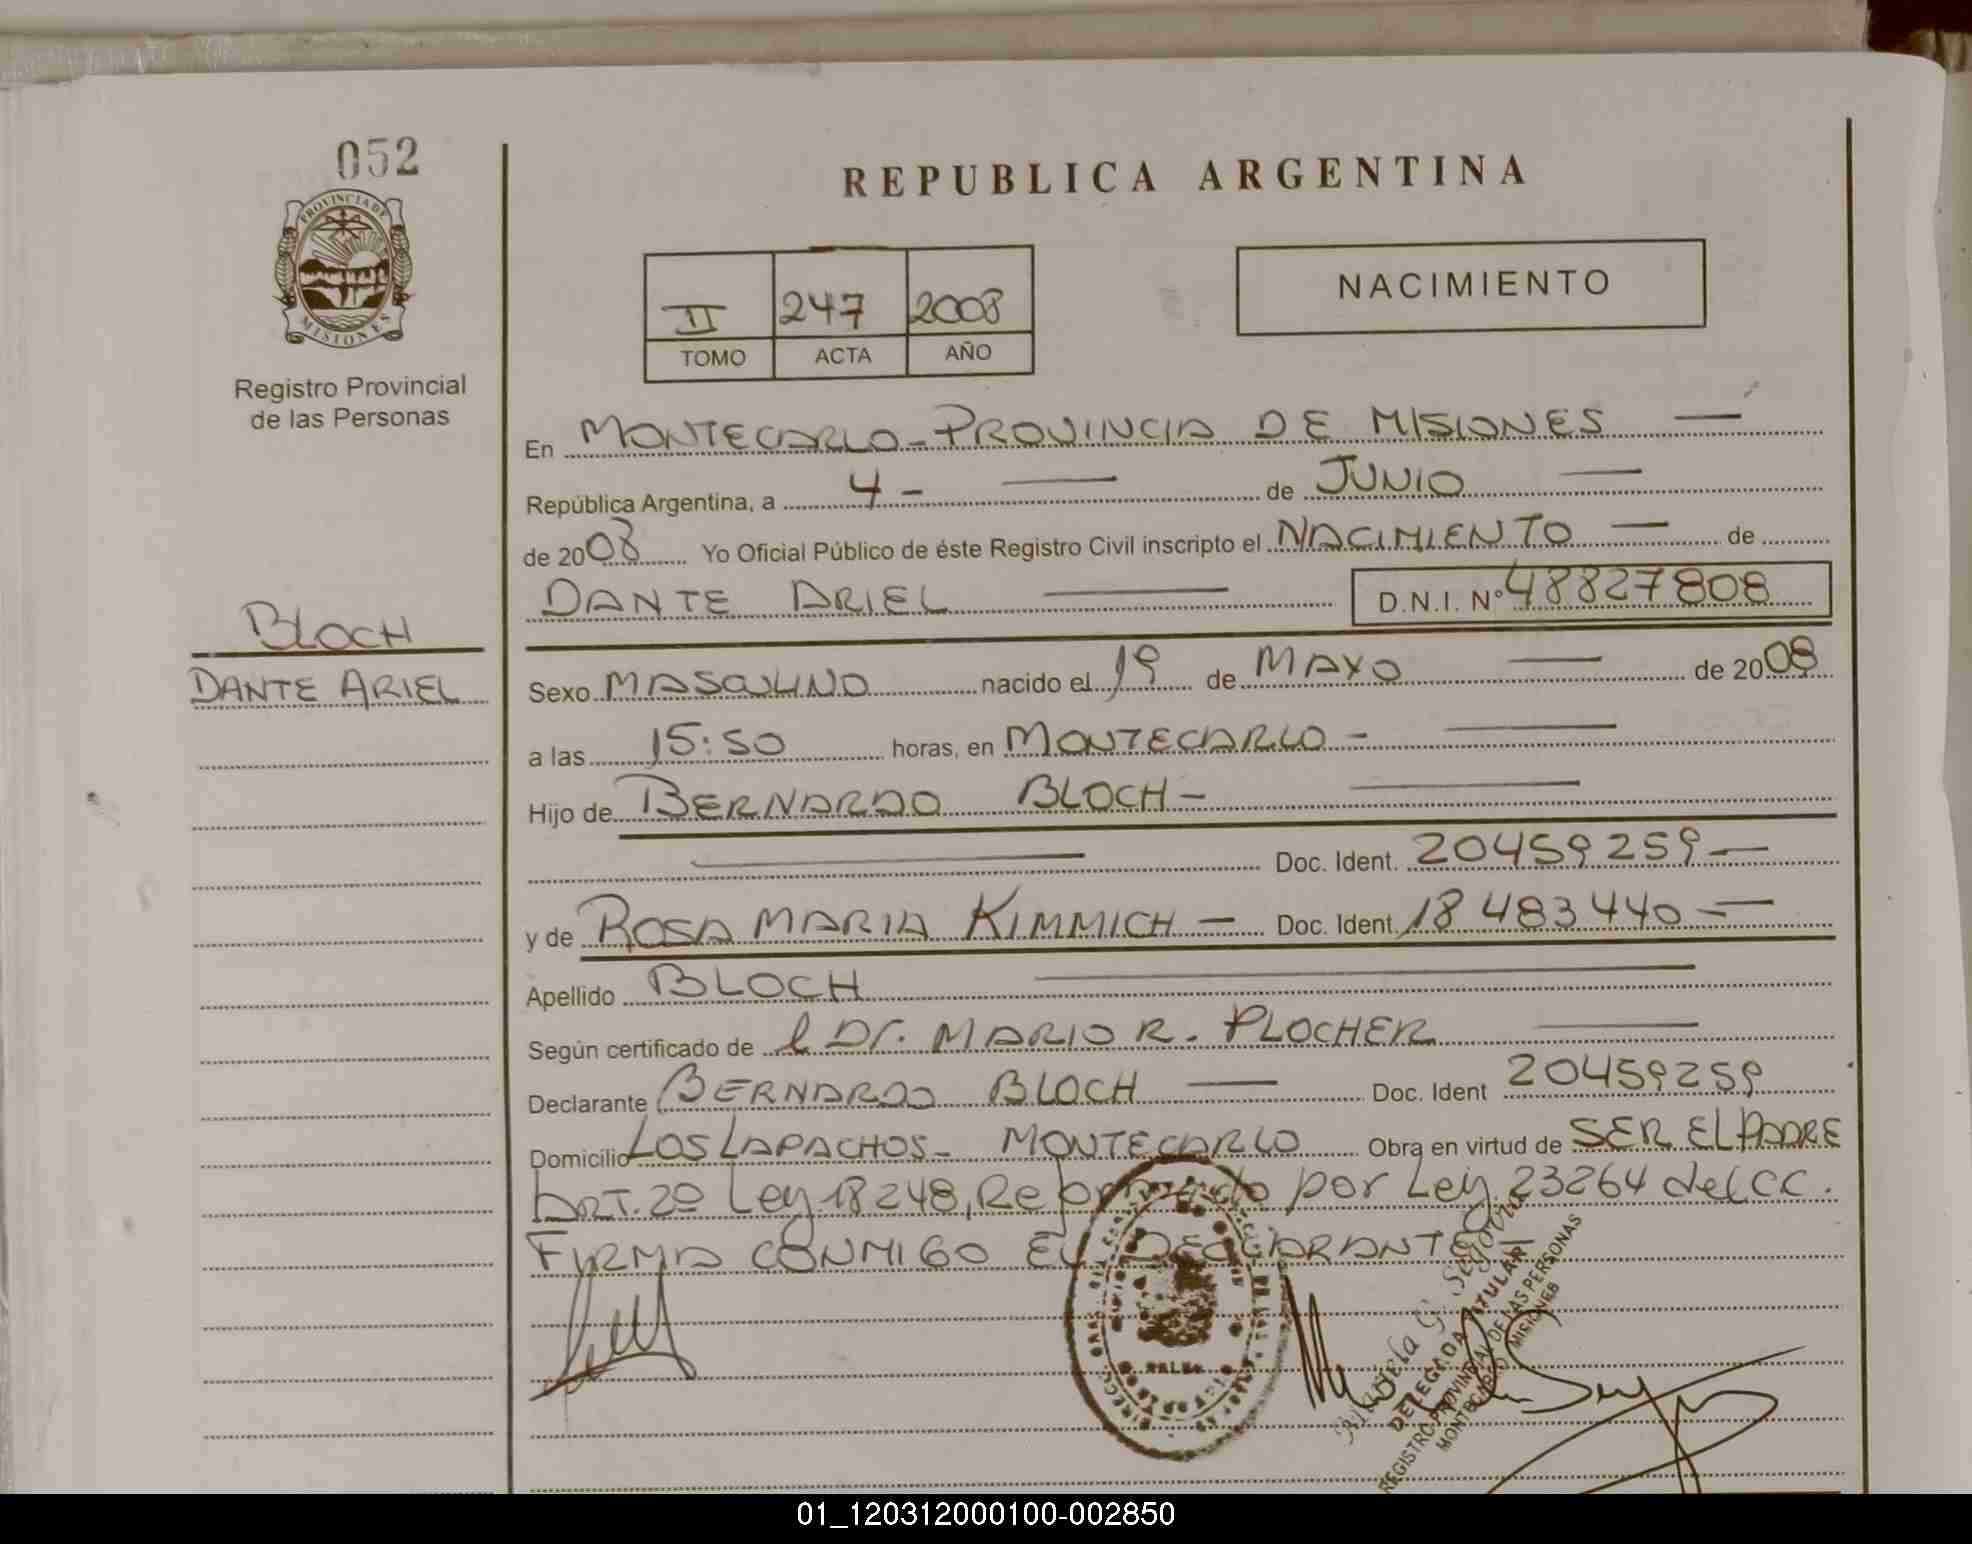 052
PROVINCIA DE
MISIONES
Registro Provincial
de las Personas
BLOCH
DANTE ARIEL
REPUBLICA ARGENTINA
II 247 2008
TOMO ACTA AÑO
NACIMIENTO
En MONTECARLO - PROVINCIA DE MISIONES —
República Argentina, a 4 - — de JUNIO —
de 2008 Yo Oficial Público de éste Registro Civil inscripto el NACIMIENTO — de
DANTE ARIEL — D.N.I. Nº 48827808
Sexo MASCULINO nacido el 19 de MAYO — de 2008
a las 15:50 horas, en MONTECARLO - —
Hijo de BERNARDO BLOCH - —
— Doc. Ident. 20459259 —
y de ROSA MARIA KIMMICH — Doc. Ident. 18483440 - —
Apellido BLOCH —
Según certificado de l Dr. MARIO R. PLOCHER —
Declarante BERNARDO BLOCH — Doc. Ident 20459259
Domicilio LOS LAPACHOS - MONTECARLO Obra en virtud de SER EL PADRE
ART. 2º Ley 18248, Reformado por Ley 23264 del CC.
FIRMA CONMIGO EL DECLARANTE
DELEGADA TITULAR
REGISTRO PROVINCIAL DE LAS PERSONAS
MONTECARLO MISIONES
01_120312000100-002850